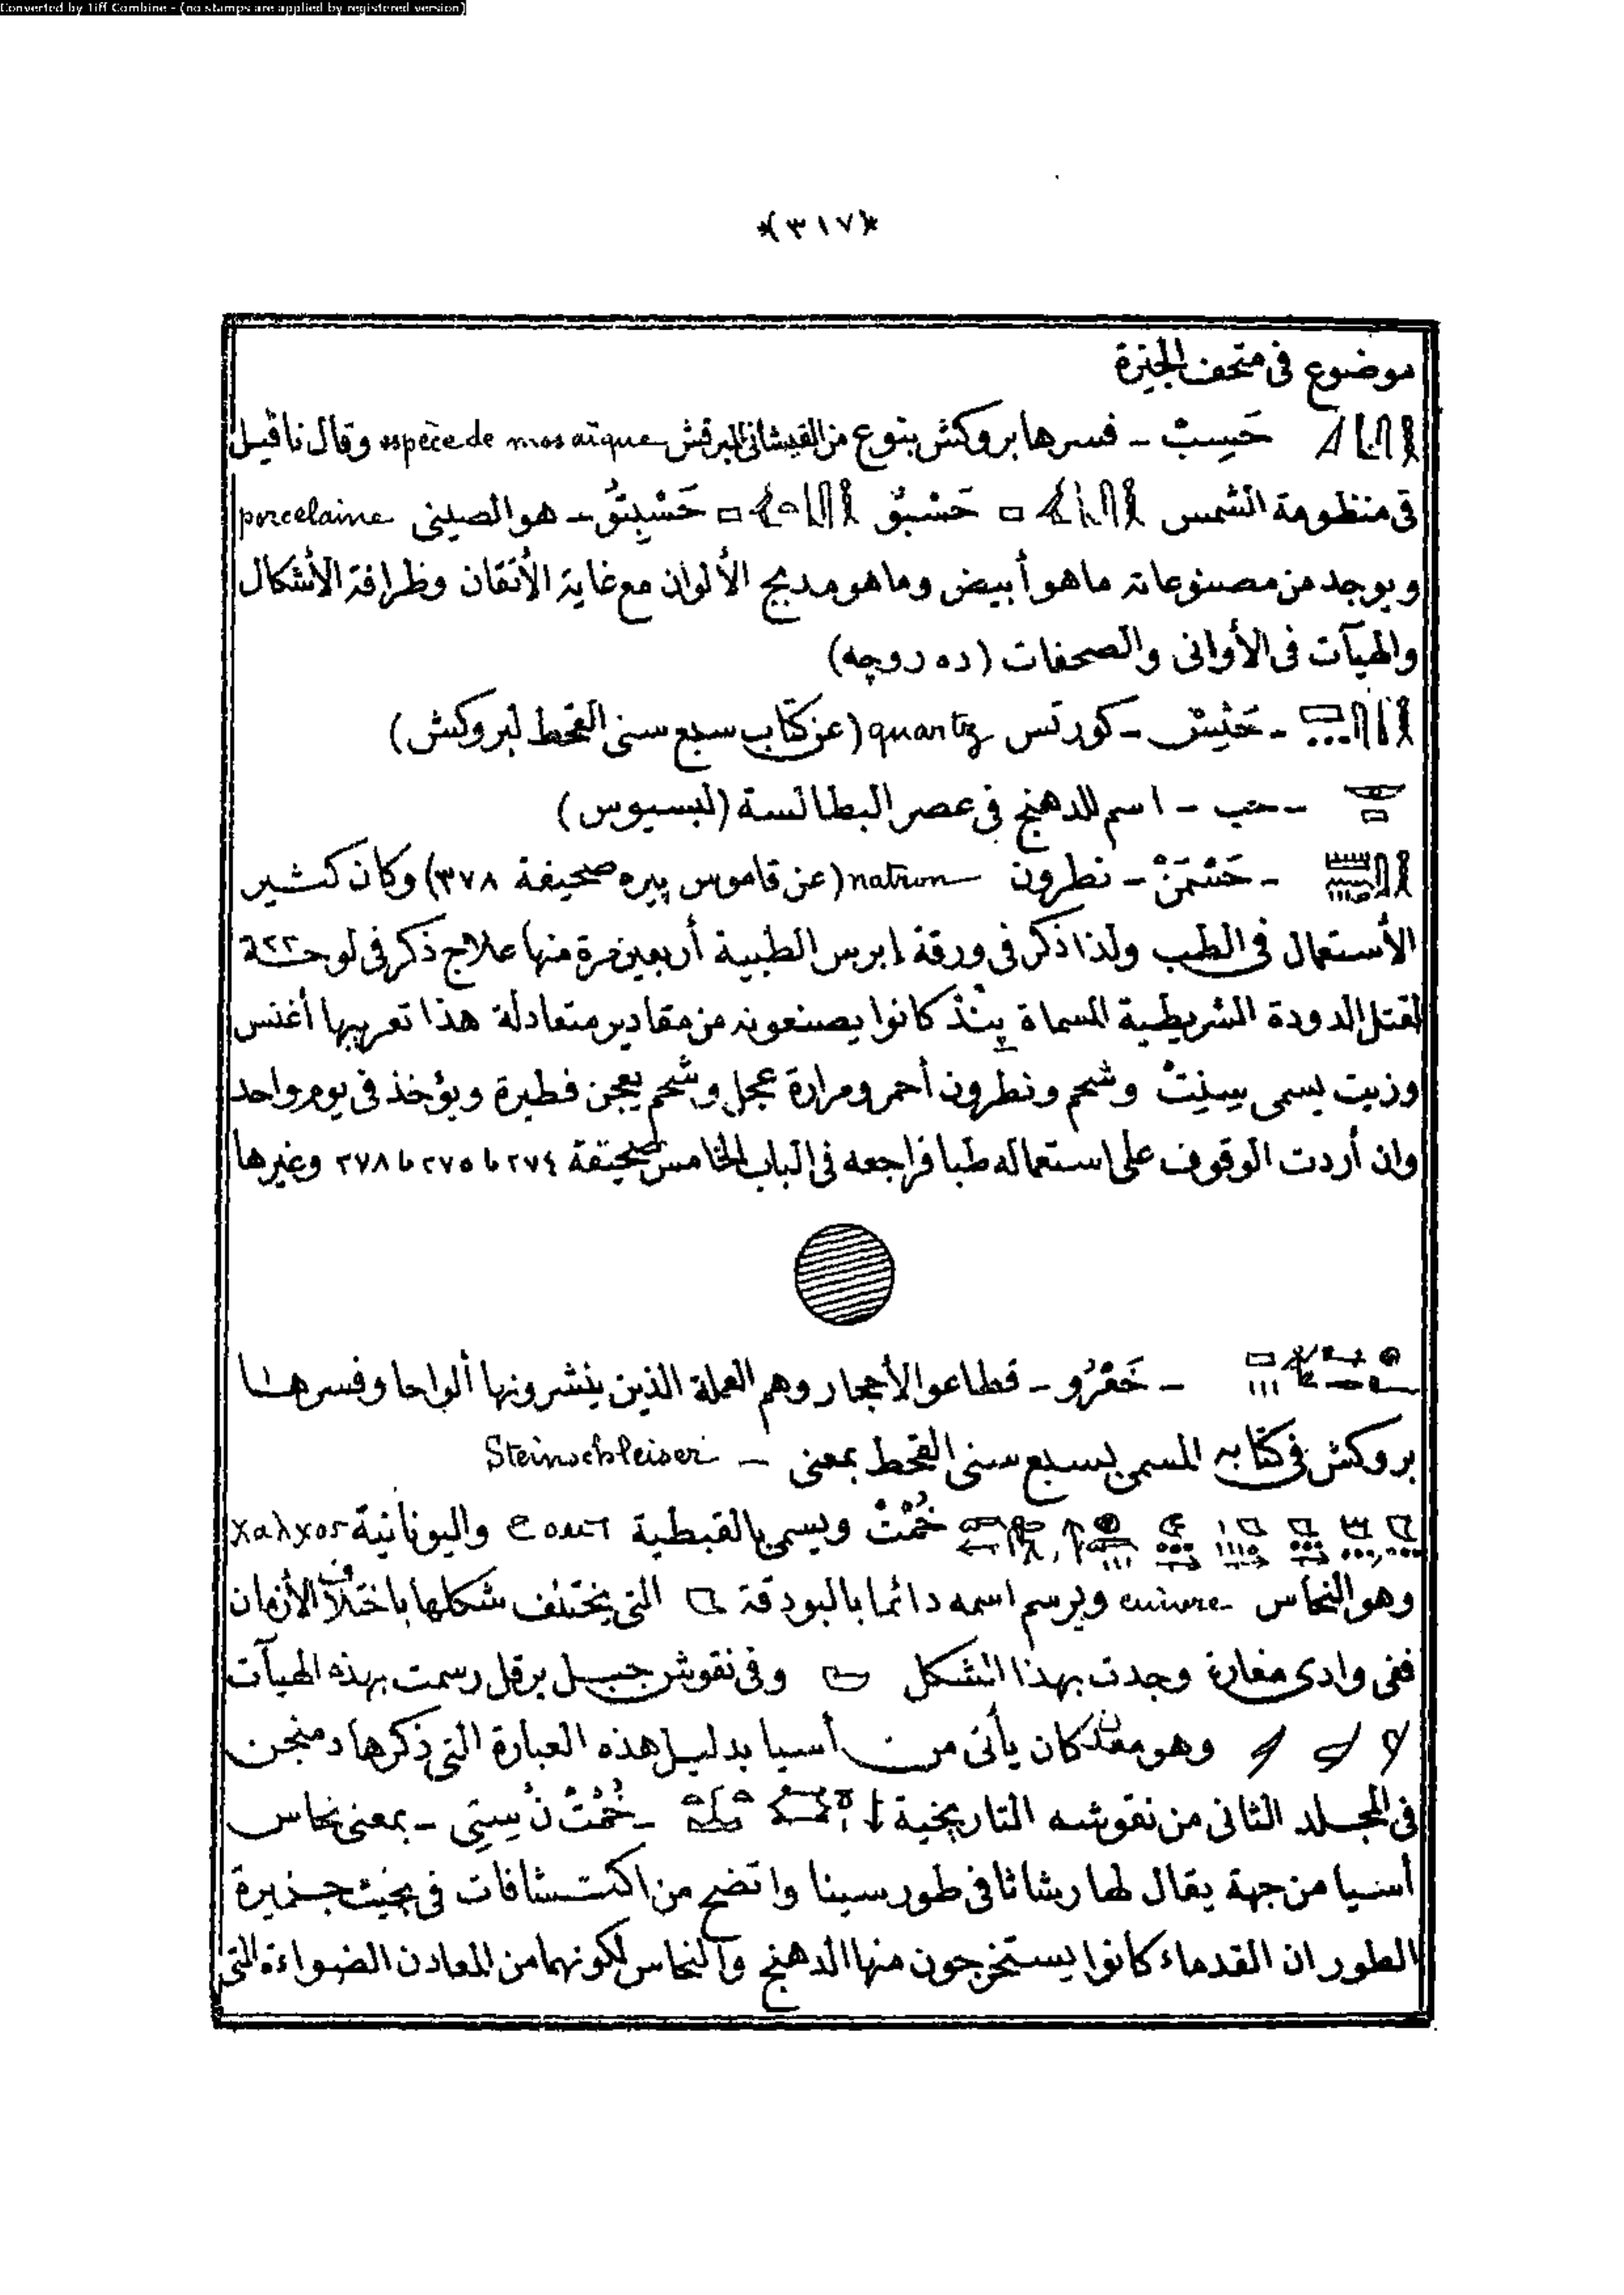 Converted by Tiff Combine - (no stamps are applied by registered version)
*(٣١٧)*
موضوع فى متحف الجيزة
حَسِبْ - فسرها بروكش بنوع من القيشانى المبرقش espèce de mosaïque وقال ناڤيل
فى منظومة الشمس حَسْبِقْ حَسْبِتَقُ - هو الصينى porcelaine
ويوجد من مصنوعاته ما هو أبيض وما هو مدبج الألوان مع غاية الأتقان وظرافة الأشكال
والهيآت فى الأوانى والصحفات (ده روچه)
- حَنِسْ - كورتس quartz (عن كتاب سبع سنى القحط لبروكش)
- حب - اسم للدهنج فى عصر البطالسة (لبسيوس)
- حَسْمَنْ - نطرون natron (عن قاموس پيره صحيفة ٣٧٨) وكان كثير
الأستعمال فى الطب ولذا ذكر فى ورقة إبرس الطبية أربعين مرة منها علاج ذكر فى لوحة ٢٢
لقتل الدودة الشريطية المسماة پِنْدْ كانوا يصنعونه من مقادير متعادلة هذا تعريبها أغنس
وزيت يسمى سِنِتْ وشحم ونطرون أحمر ومرارة عجل وشحم يعجن فطيرة ويؤخذ فى يوم واحد
وان أردت الوقوف على استعماله طبا فراجعه فى الباب الخامس صحيفة ٢٧٤ و ٢٧٥ و ٢٧٨ وغيرها
- خَعْرُو - قطاعو الأحجار وهم العملة الذين ينشرونها ألواحا وفسرها
بروكش فى كتابه المسمى بسبع سنى القحط بمعنى - Steinschleiser
خُمْتْ ويسمى بالقبطية ϩⲟⲙⲧ واليونانية χαλχος
وهو النحاس cuivre ويرسم اسمه دائما بالبودقة التى يختلف شكلها باختلاف الأزمان
ففى وادى مغارة وجدت بهذا الشكل وفى نقوش جبل برقل رسمت بهذه الهيآت
وهو معدن كان يأتى من أسيا بدليل هذه العبارة التى ذكرها دمنجن
فى المجلد الثانى من نقوشه التاريخية - خُمْتُ نُ سِتِى - بمعنى نحاس
أسيا من جهة يقال لها ريشاثا فى طور سينا واتضح من اكتشافات فى بحيث جزيرة
الطور ان القدماء كانوا يستخرجون منها الدهنج والنحاس لكونهما من المعادن الضواءة التى